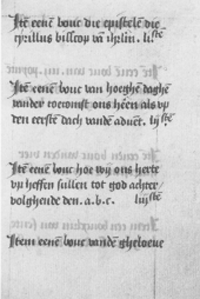 Itē eenē bouc die epistelē die
cyrillus bisscop vā ihrlm. li^stē
Itē eenē bouc van hoeghē daghē
vander toecomst ons hēen als vp
den eerstē dach vandē aduēt. lij^stē
Itē eenē bouc hoe wij ons herte
vp heffen sullen tot god achter/
volghende den. a. b. c. liij^stē
Item eenē bouc vandē gheloeue